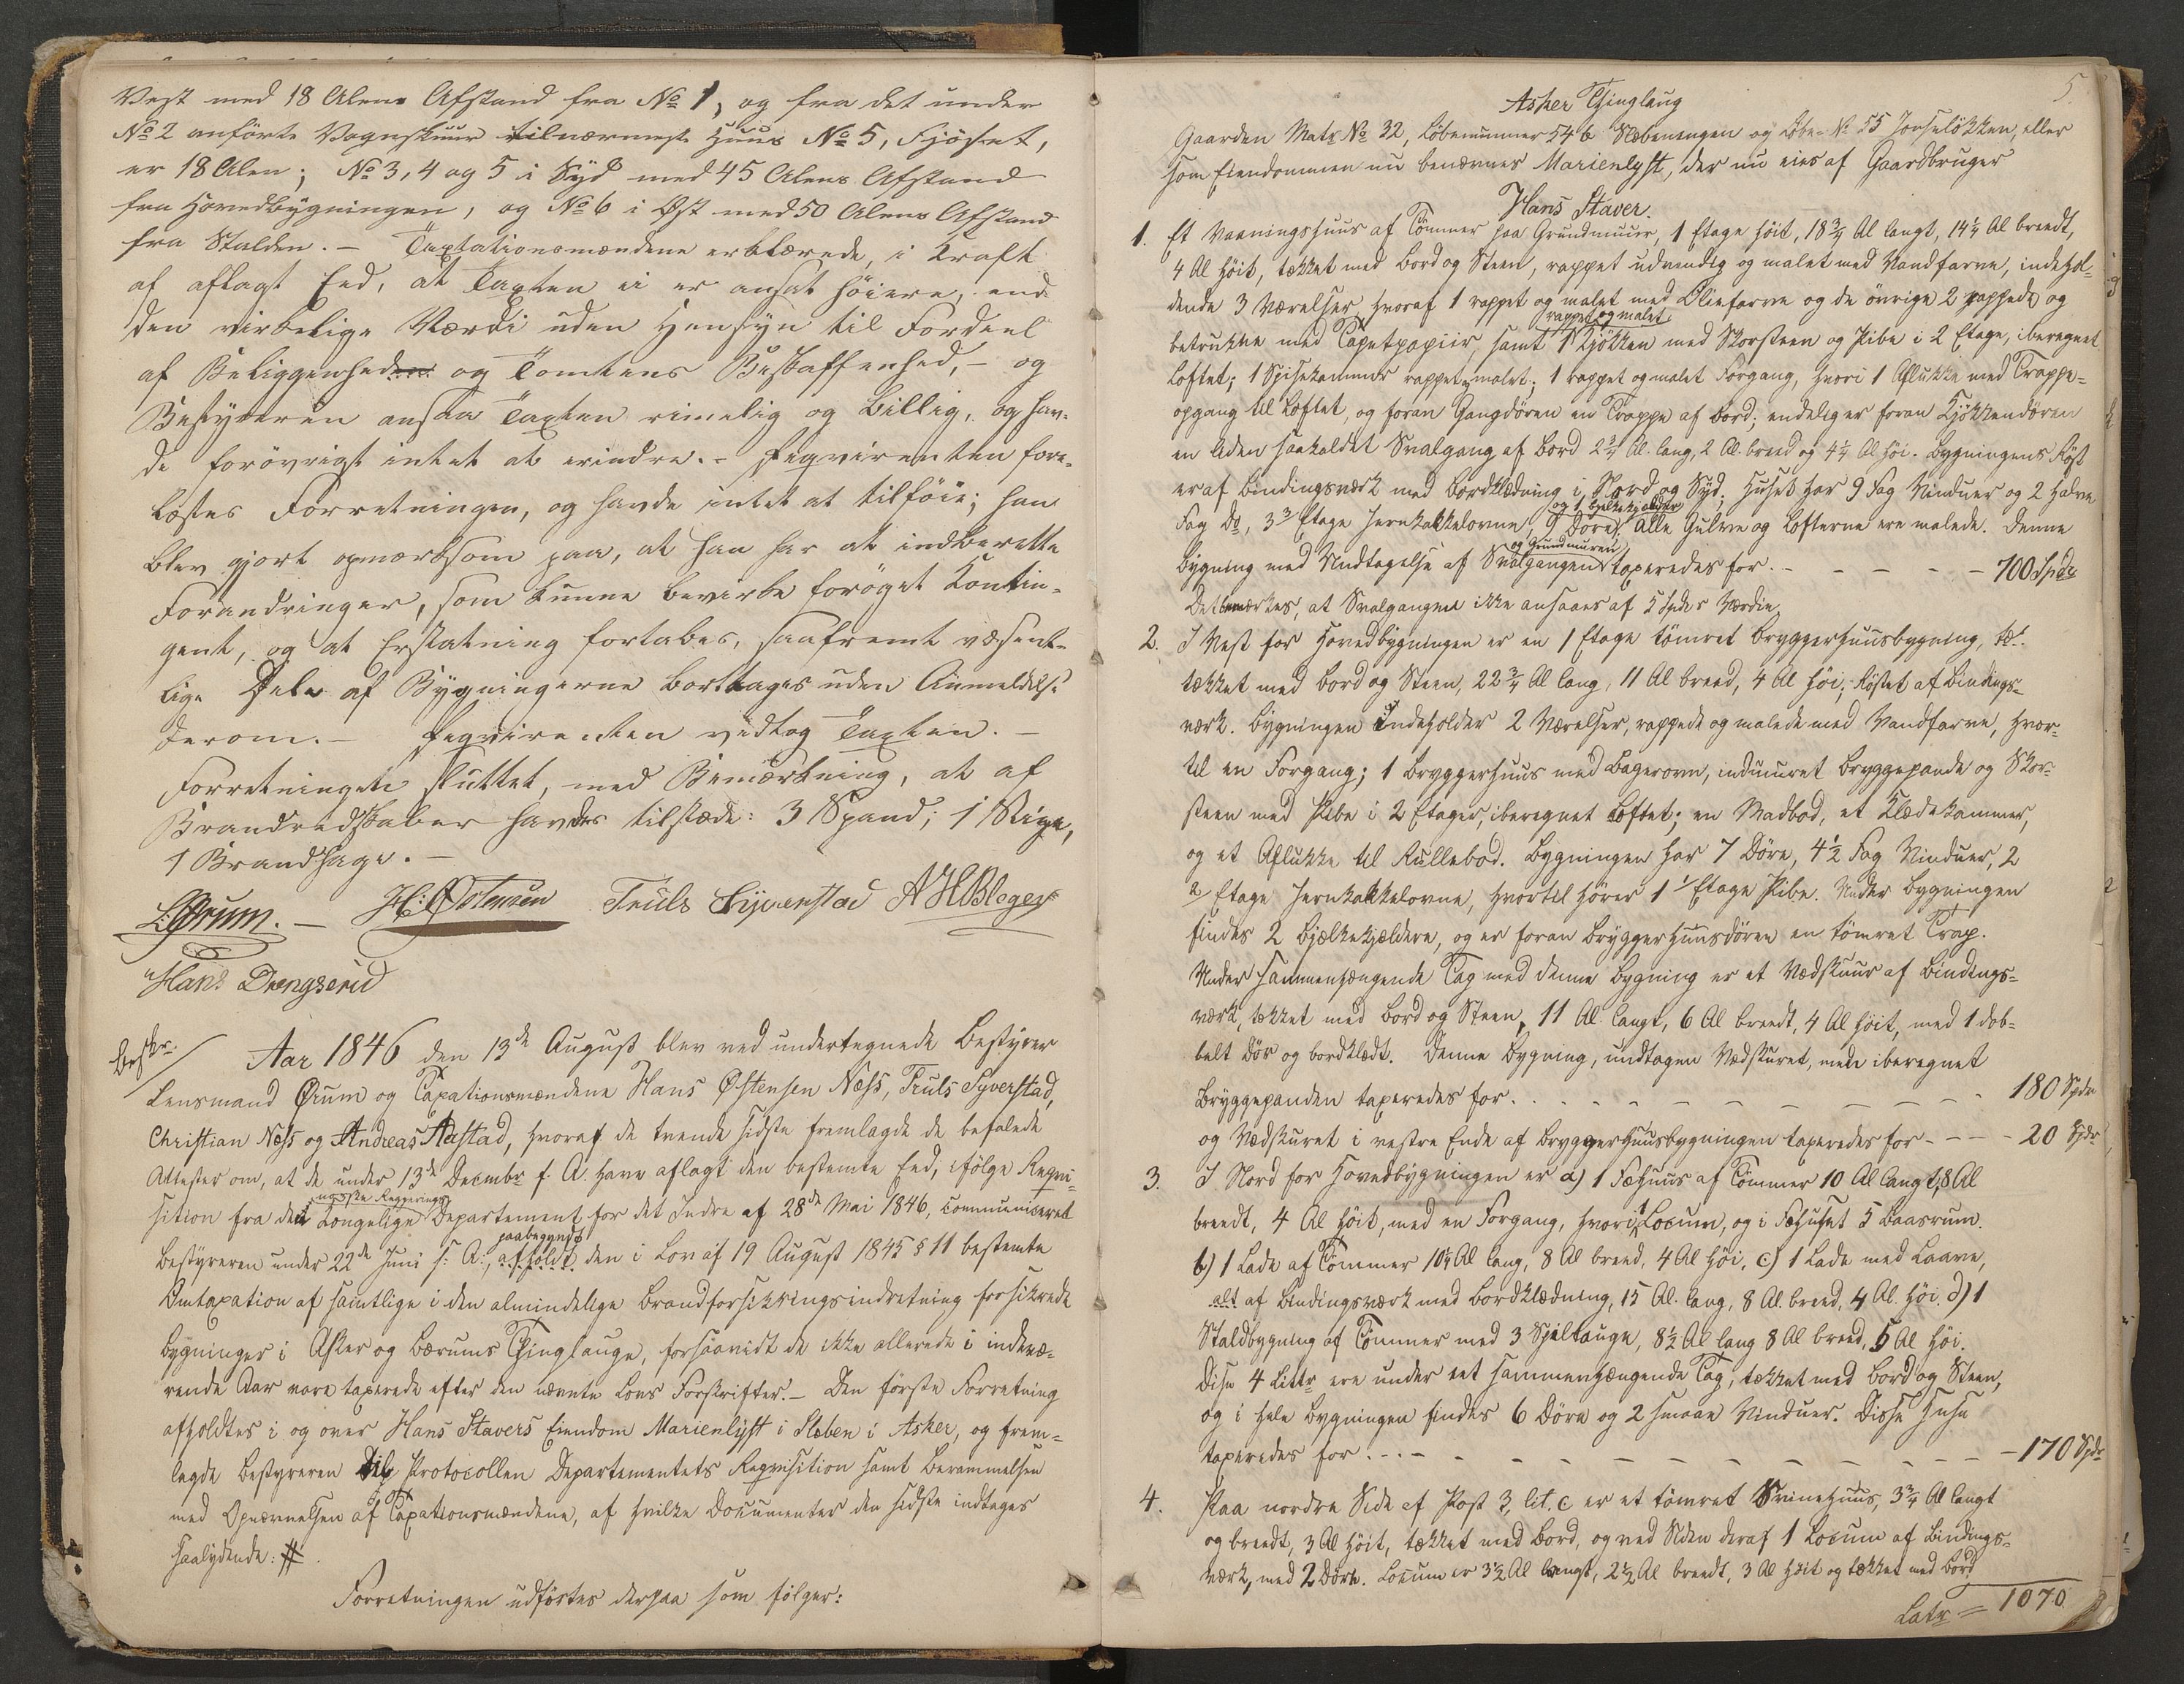 Vest med 18 Alens Afstand fra No 1, og fra det under
No 2 anförte Vognskuur tilnærmest Huus No 5, Fjöset,
er 18 Alen; No 3, 4 og 5 i Syd med 45 Alens Afstand
fra Hovedbygningen, og No 6 i Øst med 50 Alens Afstand
fra Stalden. – Taxtationsmændene erklærede, i Kraft
af aflagt Eed, at Taxten ei er ansat höiere, end
den virkelige Værdi uden Hensyn til Fordeel
af Beliggenheden og Tomtens Beskaffenhed, – og
Bestyreren ansaa Taxten rimelig og billig, og hav-
de forövrigt intet at erindre. – Reqvirenten fore-
læstes Forretningen, og havde intet at tilföie; han
blev gjort opmærksom paa, at han har at indberette
Forandringer, som kunne bevirke foröget Kontin-
gent, og at Erstatning fortabes, saafremt væsent-
lige Dele af Bygningerne borttages uden Anmeldelse
derom. – Reqvirenten vedtog Taxten. –
Forretningen sluttet, med Bemærkning, at af
Brandredskaber havdes tilstæde: 3 Spand; 1 Stige,
1 Brandhage. –
L. Ørum. – H: Østensen Truls Syverstad AHBleger
Hans Drengsrud
Beskr.
Aar 1846 den 13de August blev ved undertegnede Bestyrer
Lensmand Ørum og Taxationsmændene Hans Østensen Næss, Truls Syverstad,
Christian Næss og Andreas Aastad, hvoraf de tvende sidste fremlagde de befalede
Attester om, at de under 13de Decmbr f. A. have aflagt den bestemte Eed, ifölge Reqvi-
norske Regjerings
sition fra det kongelige Departement for det Indre af 28de Mai 1846, communiceret
paabegyndt
Bestyreren under 22de Juni s: A:, afholdt den i Lov af 19 August 1845 § 11 bestemte
Omtaxation af samtlige i den almindelige Brandforsikringsindretning forsikrede
Bygninger i Asker og Bærums Thinglauge, forsaavidt de ikke allerede i indevæ-
rende Aar vare taxerede efter den nævnte Lovs Forskrifter. – Den förste Forretning
afholdtes i og over Hans Stavers Eiendom Marienlyst i Sleben i Asker, og frem-
lagde Bestyreren Protocollen Departementets Reqvisition samt Berammelsen
med Opnævnelsen af Taxationsmændene, af hvilke Documenter den sidste indtages
saalydende: #.
Forretningen udförtes derpaa som fölger:
5.
Asker Thinglaug
Gaarden Matr No 32, Löbenummer 54 b Slæbenengen og Löbe-No 55 Jonsrlökken, eller
som Eiendommen nu benævnes Marienlyst, der nu eies af Gaardbruger
Hans Staver.
1. Et Vaaningshuus af Tömmer paa Grundmuur, 1 Etage höit, 18¾ Al langt, 14¼ Al breedt,
4 Al höit, tækket med Bord og Steen, rappet udvendig og malet med Vandfarve, indehol-
dende 3 Værelser, hvoraf 1 rappet og malet med Oliefarve og de övrige 2 rappede og
rappet og malet
betrukne med Tapetpapiir, samt 1 Kjökken med Skorsteen og Pibe i 2 Etage, iberegnet
Loftet; 1 Spisekammer rappet og malet; 1 rappet og malet Forgang, hvori 1 Aflukke med Trappe-
opgang til Loftet, og foran Gangdören en Trappe af Bord; endelig er foran Kjökkendören
en liden saakaldet Svalgang af Bord 2¾ Al. lang, 2 Al. breed og 4¼ Al höi. Bygningens Röst
er af Bindingsværk med Bordklædning i Nord og Syd. Huset har 9 Fag Vinduer og 2 halve
og 1 Bjelkekjelder
Fag Do, 3 3 Etage Jernkakkelovne, 9 Döre. Alle Gulve og Lofterne ere malede. Denne
og Grundmuren
Bygning med Undtagelse af Svalgangen taxeredes for. – – – – – – 700 Spdr
Det bemærkes, at Svalgangen ikke ansaaes af 5 Spdrs Værdie.
2. I Vest for Hovedbygningen er en 1 Etage tömret Bryggerhuusbygning,
tækket med Bord og Steen, 22¾ Al lang, 11 Al breed, 4 Al höi; Röstet af Bindings-
værk. Bygningen indeholder 2 Værelser, rappede og malede med Vandfarve, hvor-
til en Forgang; 1 Bryggerhuus med Bagerovn, indmuret Bryggepande og Skor-
steen med Pibe i 2 Etager, iberegnet Loftet; en Madbod, et Klædekammer,
og et Aflukke til Rullebod. Bygningen har 7 Döre, 4½ Fag Vinduer, 2
2 Etage Jernkakkelovne, hvortil hörer 1 1 Etage Pibe. Under Bygningen
findes 2 Bjælkekjeldere, og er foran Bryggerhuusdören en tömret Trap.
Under sammenhængende Tag med denne Bygning er et Vedskuur af Bindings-
værk, tækket med Bord og Steen, 11 Al langt, 6 Al breedt, 4 Al höit, med 1 dob-
belt Dör og bordklædt. Denne Bygning, undtagen Vedskuret, men iberegnet
Bryggepanden taxeredes for. – – – – – – – – – 180 Spdr
og Vedskuret i vestre Ende af Bryggerhuusbygningen taxeredes for – – – 20 Spdr
3. I Nord for Hovedbygningen er a) 1 Fæhuus af Tömmer 10 Al langt, 8 Al
breedt, 4 Al höit, med en Forgang, hvori 1 Locum, og i Fæhuset 5 Baasrum.
b) 1 Lade af Tömmer 10¼ Al lang, 8 Al breed, 4 Al höi, c) 1 Lade med Laave,
alt af Bindingsværk med Bordklædning, 15 Al. lang, 8 Al. breed, 4 Al. höi. d) 1
Staldbygning af Tömmer med 3 Spiltauge, 8½ Al lang 8 Al breed, 5 Al höi.
Disse 4 Littr ere under eet sammenhængende Tag, tækket med Bord og Steen,
og i hele Bygningen findes 6 Döre og 2 smaae Vinduer. Disse Huse
taxeredes for. – – – – – – – – – – – – – 170 Spdr
4. Paa nordre Side af Post 3, lit. c er et tömret Svinehuus, 3¾ Al langt
og breedt, 3 Al höit, tækket med Bord, og ved Siden deraf 1 Locum af Bindings-
værk, med 2 Döre. Locum er 3½ Al langt, 2½ Al breedt, 3 Al höit og tækket med Bord
Latr = 1070